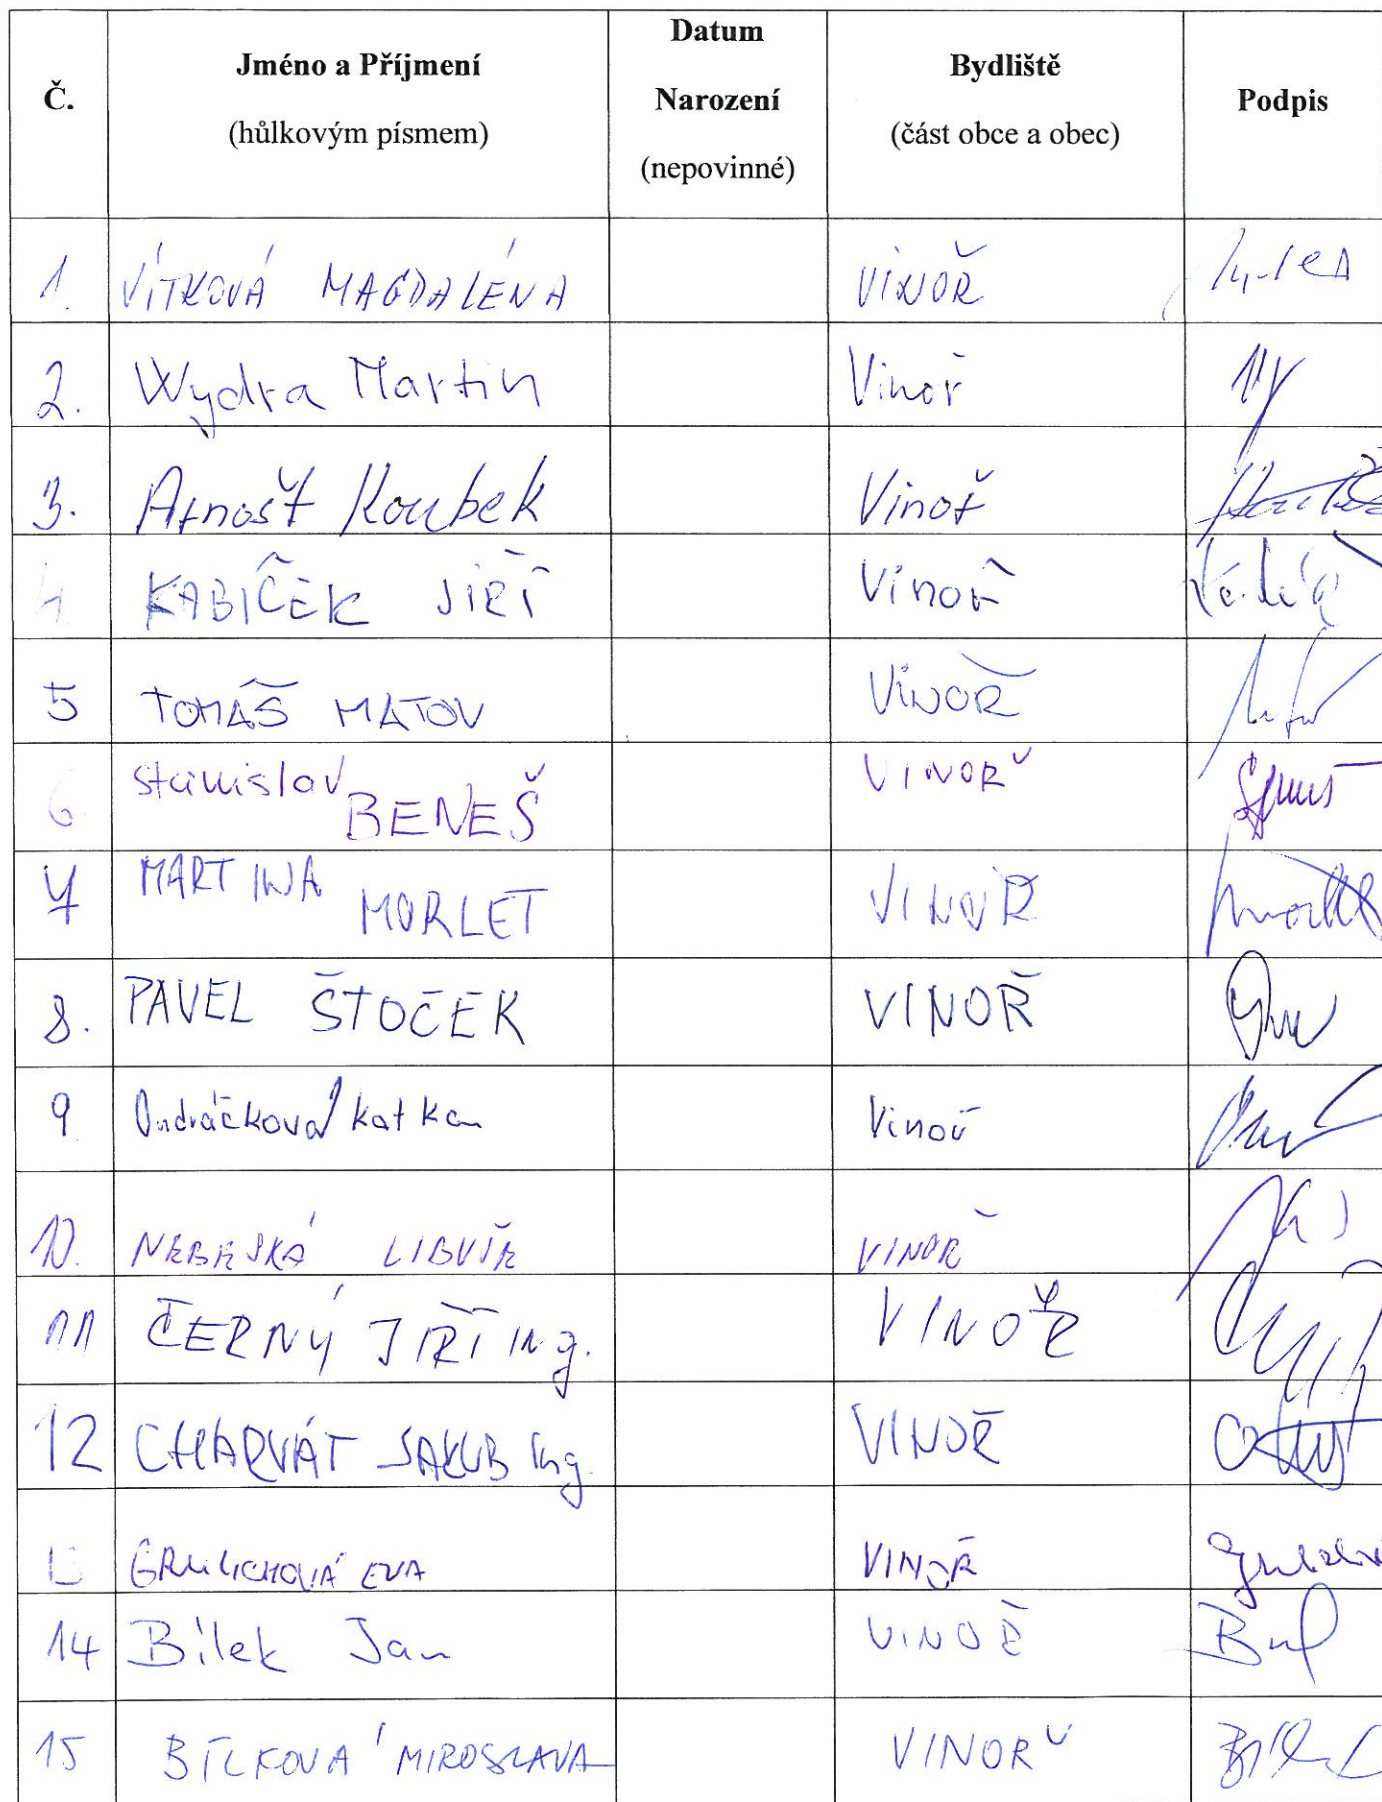 Č. Jméno a Příjmení (hůlkovým písmem) Datum Narození (nepovinné) Bydliště (část obce a obec) Podpis
1. VÍTKOVÁ MAGDALÉNA VINOŘ
2. Wydra Martin Vinoř
3. Arnošt Koubek Vinoř
4 KABÍČEK JIŘÍ Vinoř
5 TOMÁŠ MATOV VINOŘ
6 Stanislav BENEŠ VINOŘ
7 MARTINA MORLET VINOŘ
8. PAVEL ŠTOČEK VINOŘ
9 Ondráčková Katka Vinoř
10. NEBESKÁ LIBUŠE VINOŘ
11 ČERNÝ JIŘÍ Ing. VINOŘ
12 CHARVÁT JAKUB Ing. VINOŘ
13 GRULICHOVÁ EVA VINOŘ
14 Bílek Jan VINOŘ
15 BÍLKOVÁ MIROSLAVA VINOŘ